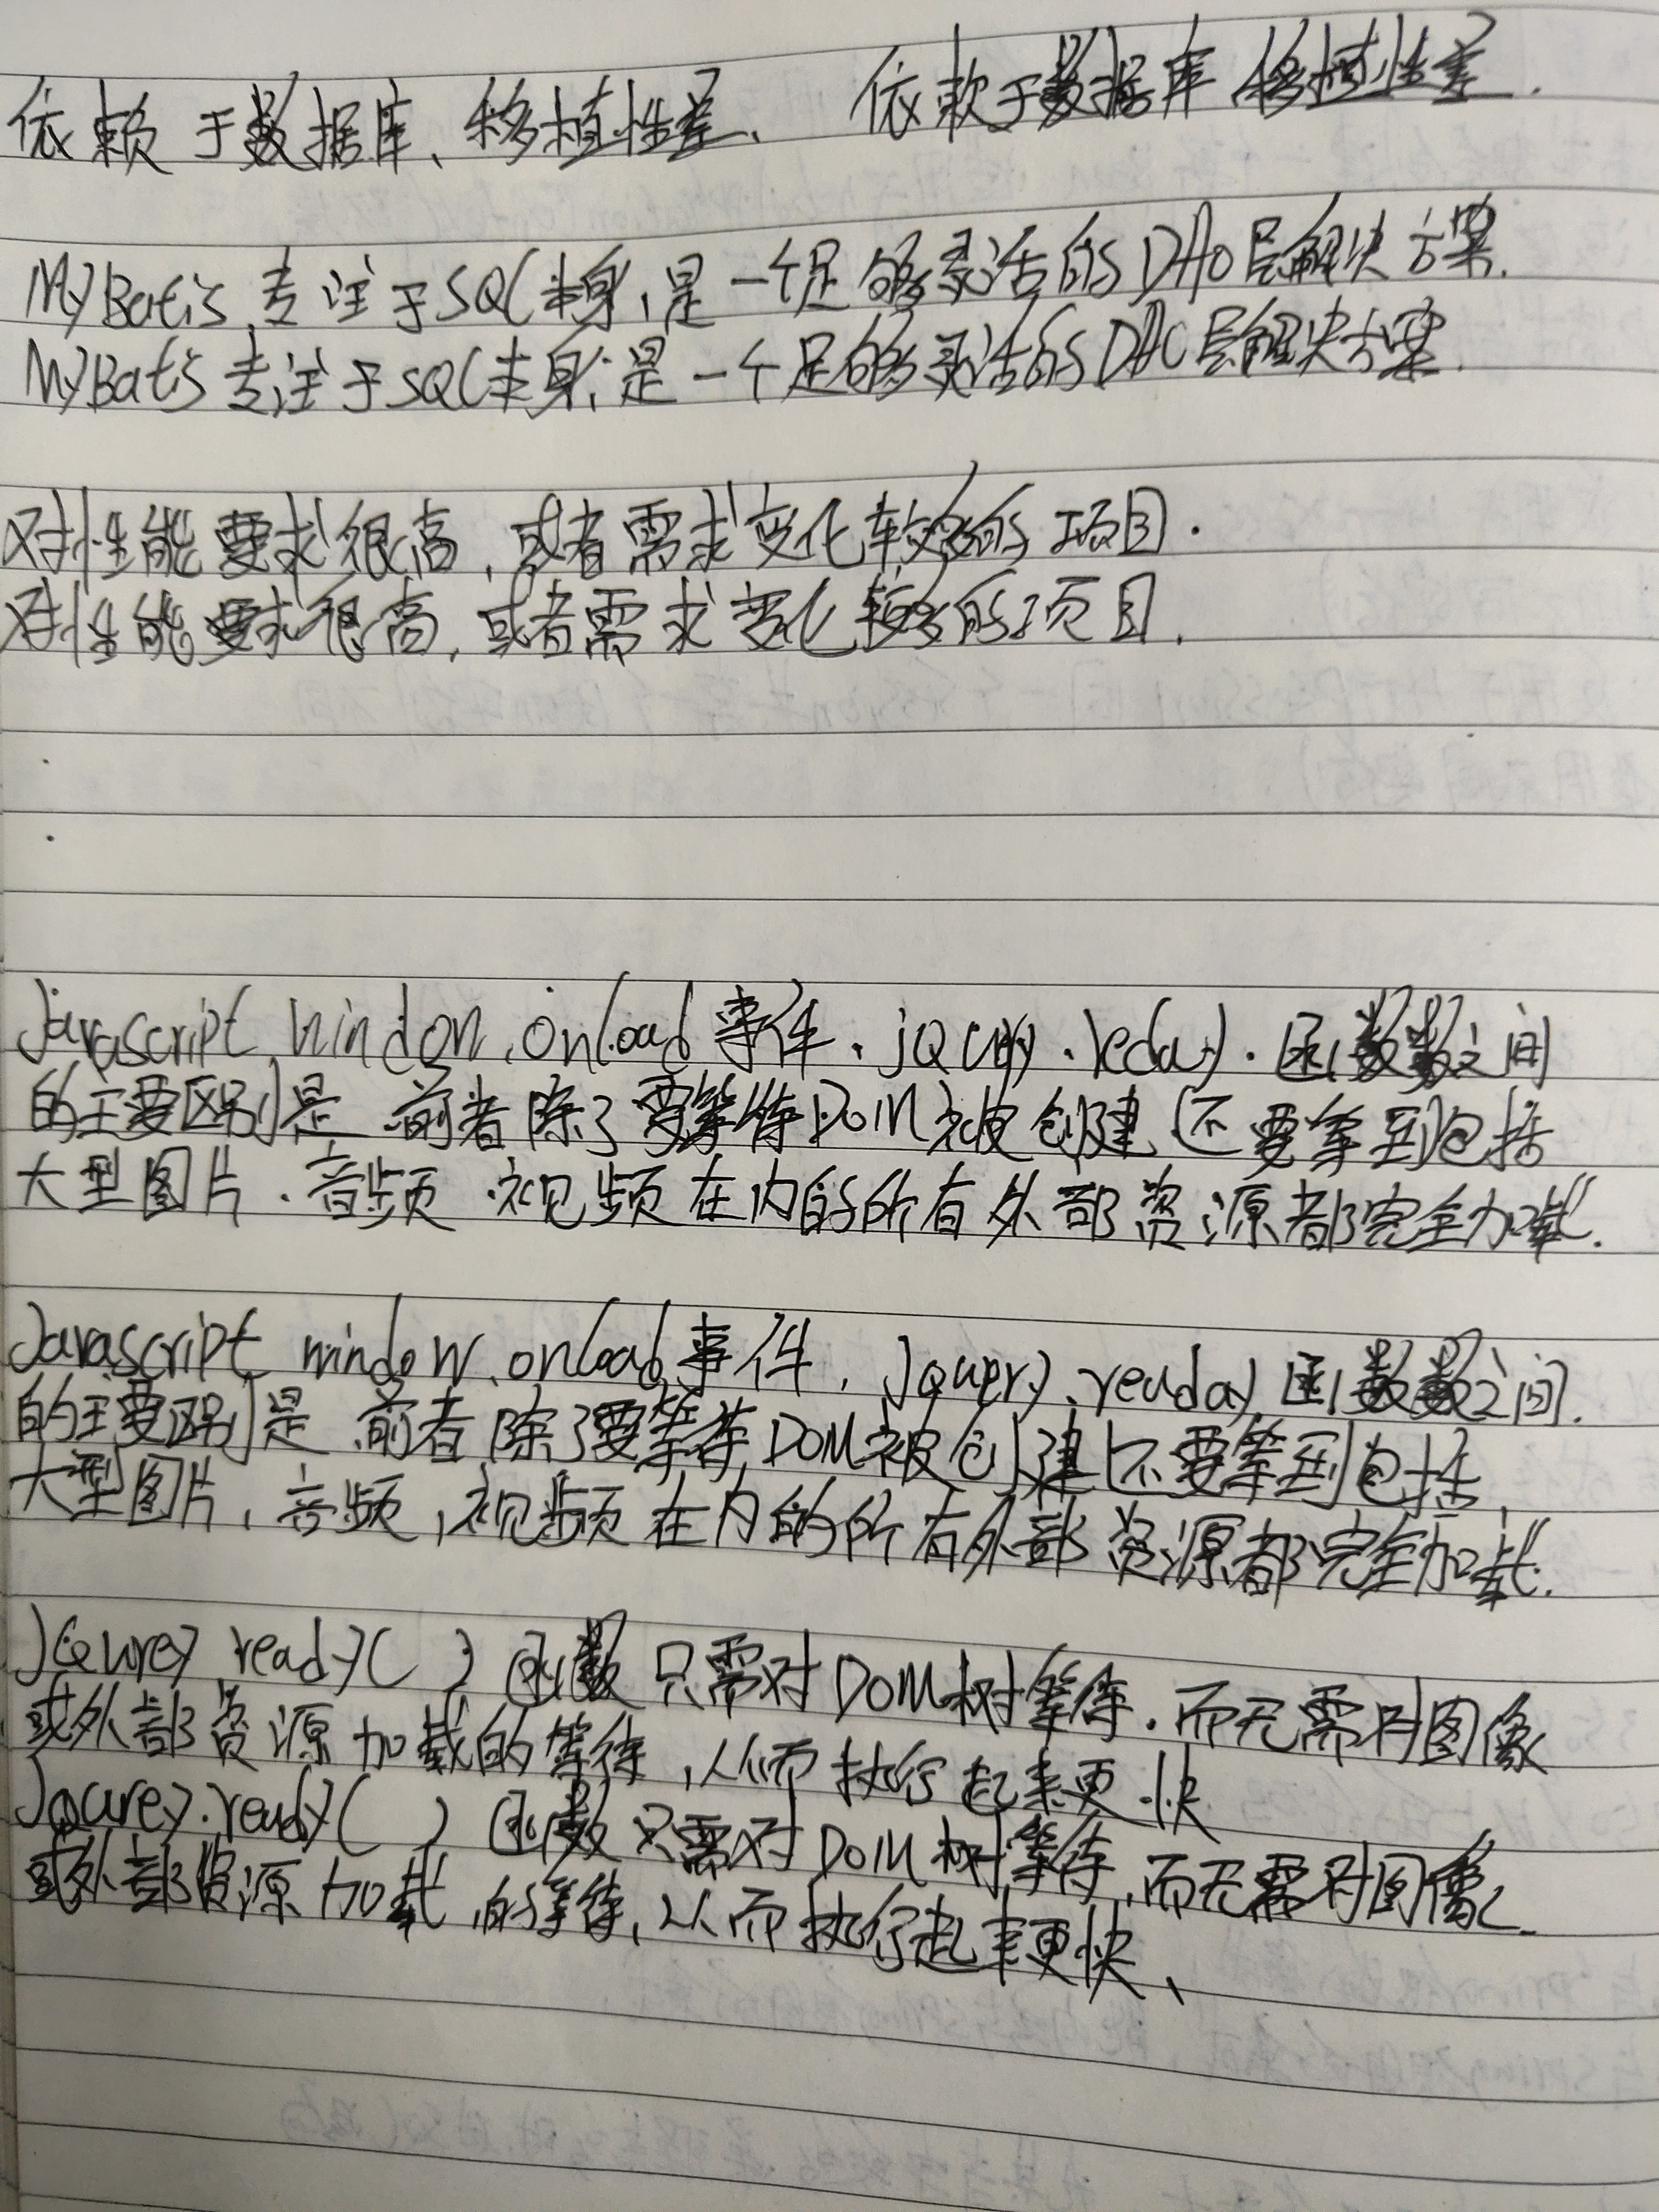 依赖于数据库、移植性差、 依赖于数据库 移植性差.
MyBatis 专注于SQL本身,是一个足够灵活的DAO层解决方案.
MyBatis 专注于SQL本身,是一个足够灵活的DAO层解决方案.
对性能要求很高,或者需求变化较多的项目.
对性能要求很高,或者需求变化较多的项目.
Javascript window.onload事件.jQuery.reday).函数数之间
的主要区别是 前者除了要等待DOM被创建还要等到包括
大型图片.音频.视频在内的所有外部资源都完全加载.
Javascript window.onload事件,Jquery.reuday函数数之间.
的主要区别是 前者除了要等待DOM被创建还要等到包括,
大型图片,音频,视频在内的所有外部资源都完全加载.
JQurey ready( )函数只需对DOM树等待.而无需对图像
或外部资源加载的等待,从而执行起来更快
Jqurey.ready( )函数只需对DOM树等待,而无需对图像
或外部资源加载的等待,从而执行起来更快、